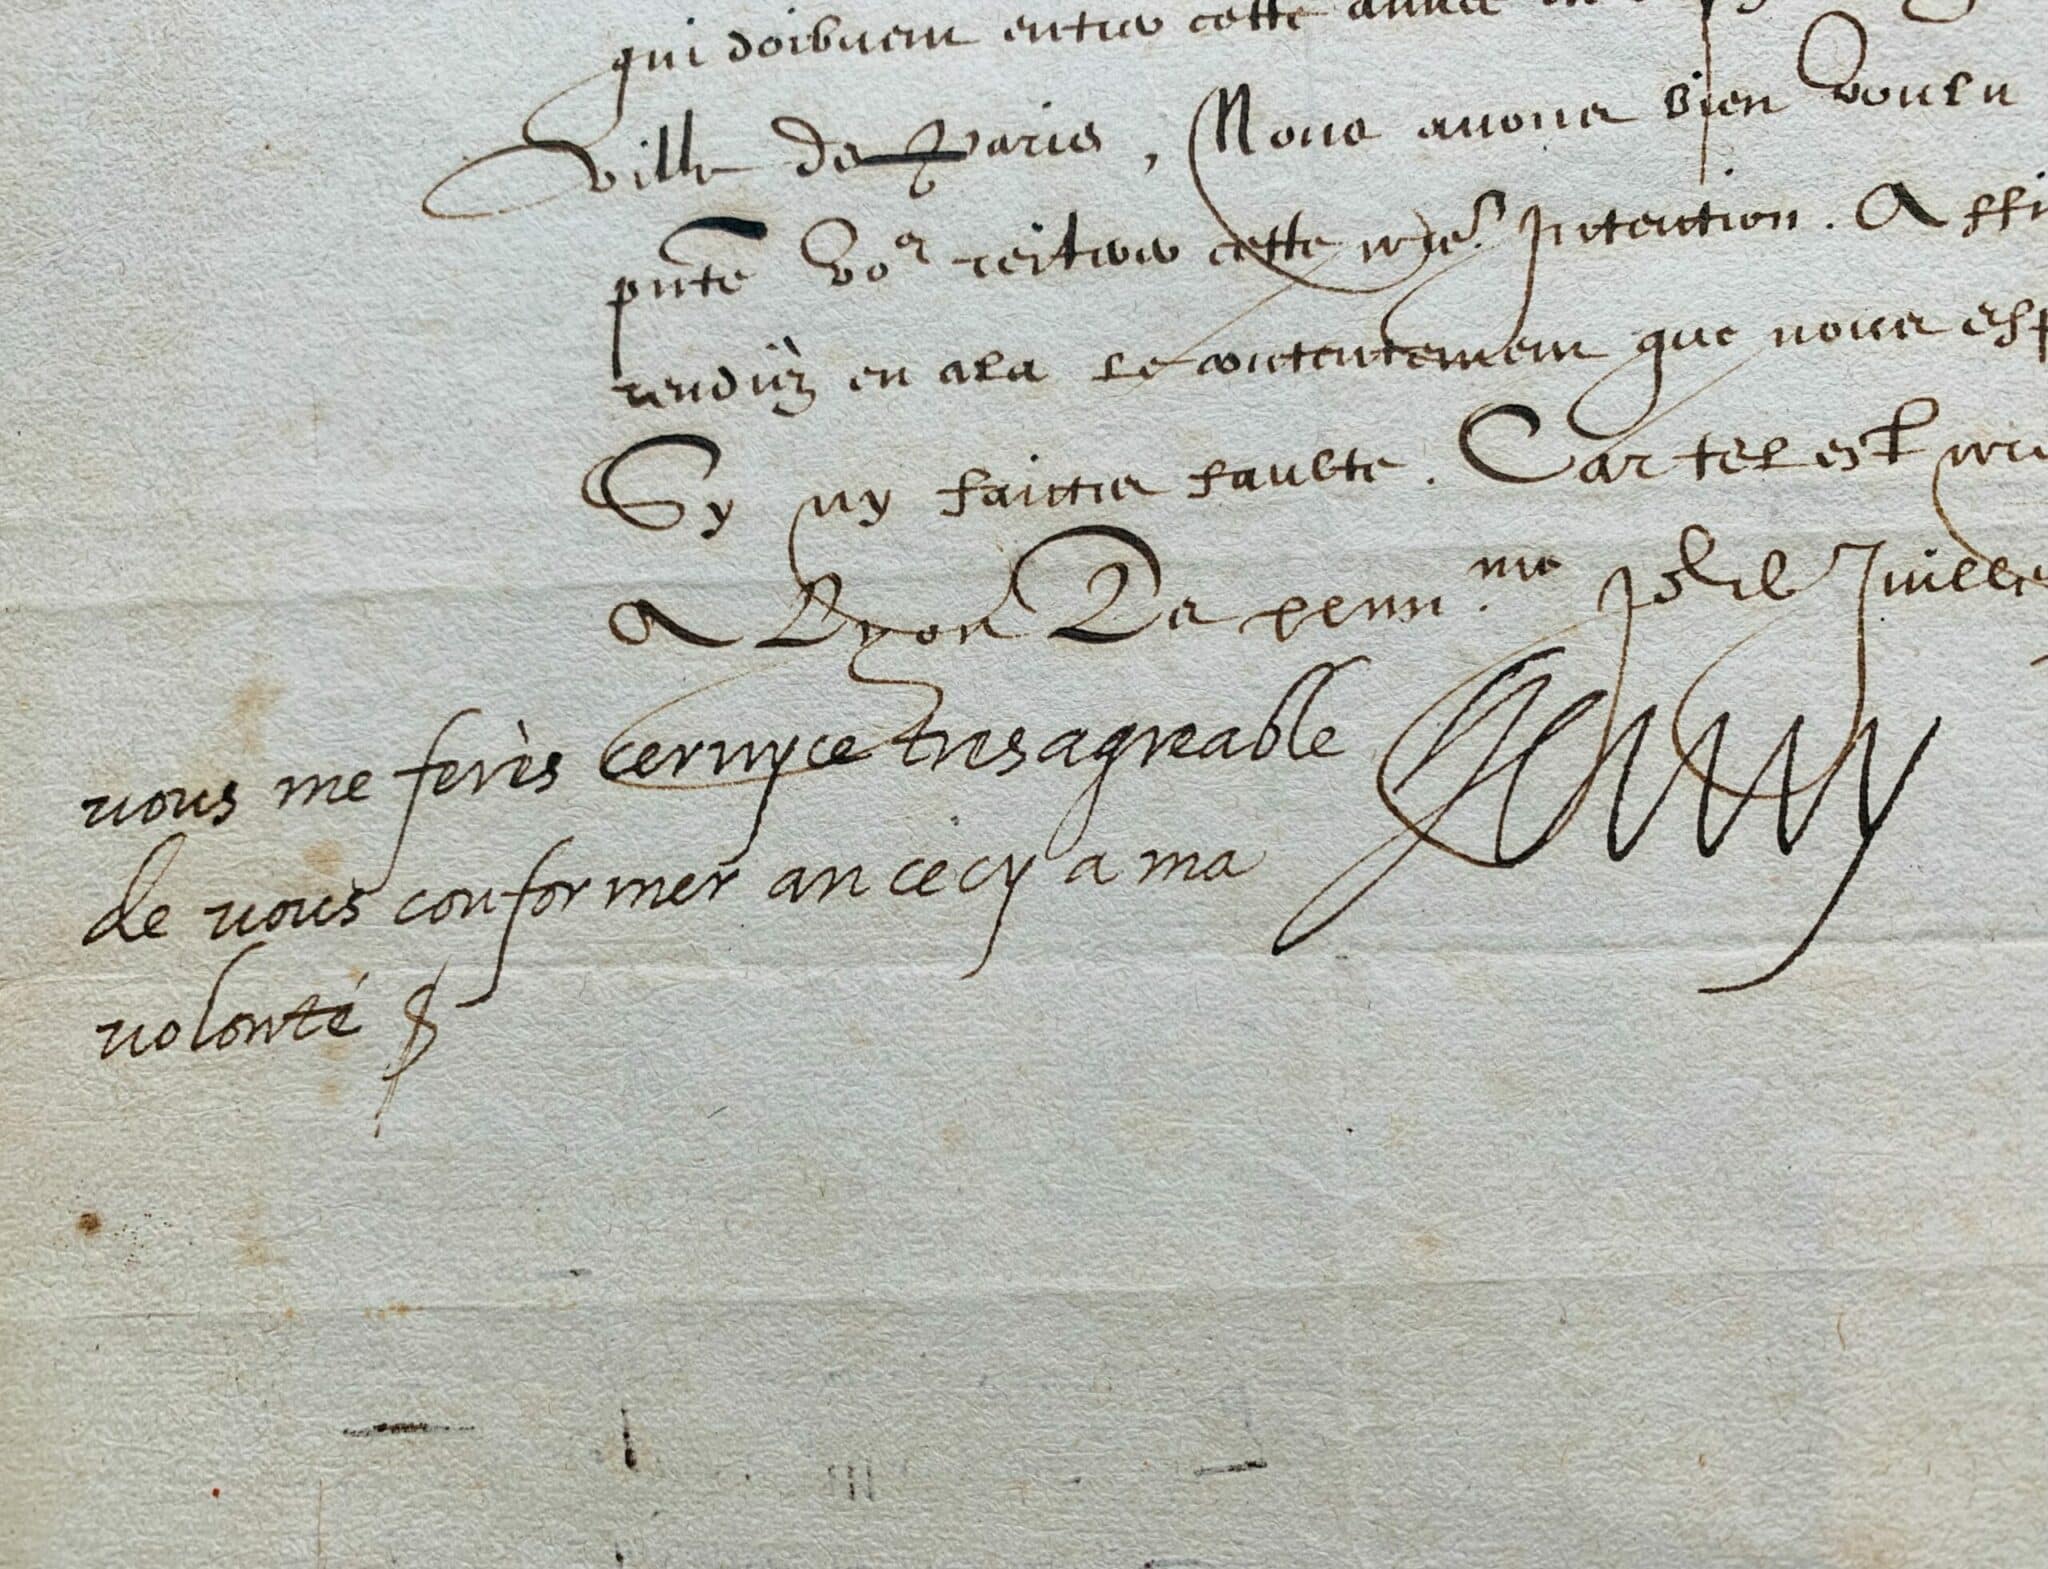 qui doibuent entrer cette année
ville de Paris, Nous auons bien voulu
pnte vos reiterer cette nre Intention. Affi
rendiez en cela le contentement que nous esp
Sy ny faictes faulte. Car tel est nre
A Lyon Le xxiiii.me Jo. de Juillet
vous me ferès cervyce tres agreable Henry
de vous conformer an cecy a ma
volonté